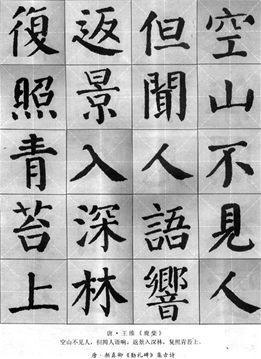 空山不見人
但聞人語響
返景入深林
復照青苔上
唐·王维《鹿柴》
空山不见人,但闻人语响;返景入深林,复照青苔上。
唐·颜真卿《勤礼碑》集古诗